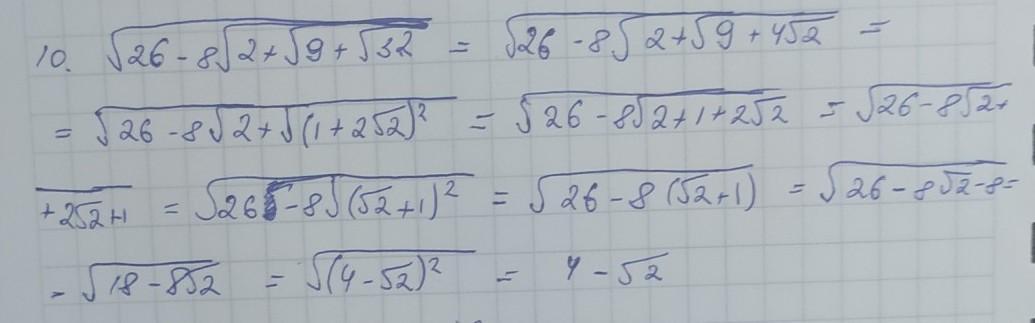 10. √(26 - 8√(2 + √(9 + √32))) = √(26 - 8√(2 + √(9 + 4√2))) =
= √(26 - 8√(2 + √((1 + 2√2)²))) = √(26 - 8√(2 + 1 + 2√2)) = √(26 - 8√(2 +
+ 2√2 + 1)) = √(26 - 8√((√2 + 1)²)) = √(26 - 8(√2 + 1)) = √(26 - 8√2 - 8) =
= √(18 - 8√2) = √((4 - √2)²) = 4 - √2